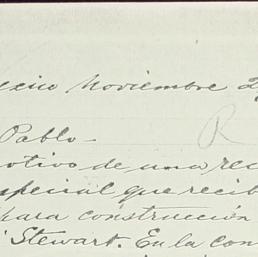 exico Noviembre 2
R
Pablo-
otivo de una rec
special que recib
para construcción
Stewart. En la con